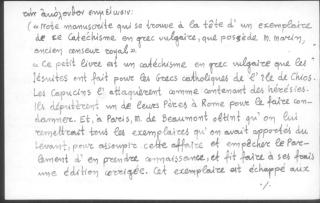 τὴν ἀκόλουθον σημείωσιν:
(« Note manuscrite qui se trouve à la tête d'un exemplaire
de ce Catéchisme en grec vulgaire, que possède M. Marin,
ancien censeur royal »
« Ce petit livre est un catéchisme en grec vulgaire que les
Jésuites ont fait pour les Grecs catholiques de l'Ile de Chios.
Les Capucins l'attaquèrent comme contenant des hérésies.
Ils députèrent un de leurs Pères à Rome pour le faire con-
damner. Et, à Paris, M. de Beaumont obtint qu'on lui
remettrait tous les exemplaires qu'on avait apportés du
Levant, pour assoupir cette affaire et empêcher le Par-
lement d'en prendre connaissance, et fit faire à ses frais
une édition corrigée. Cet exemplaire est échappé aux
./.